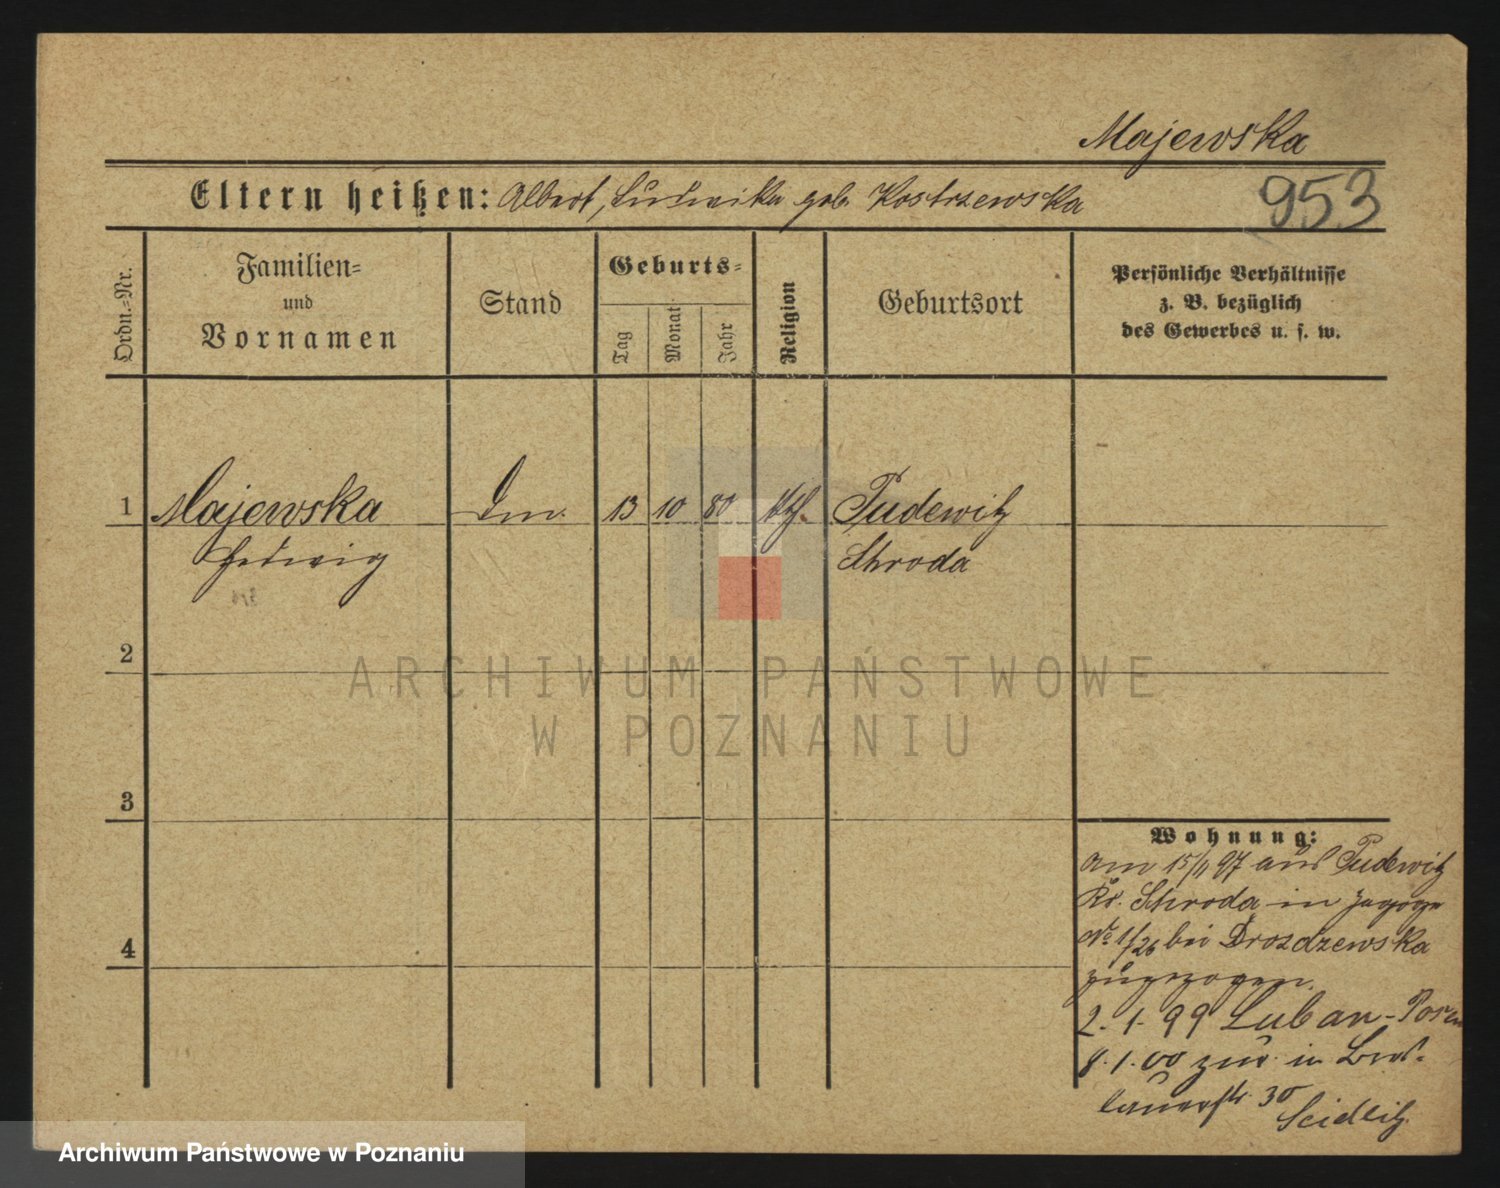 Majewska
Eltern heißen: Albert, Ludwika geb. Kostrzewska
953
Ordn.-Nr.
Familien-
und
Vornamen
Stand
Geburts-
Tag
Monat
Jahr
Religion
Geburtsort
Persönliche Verhältnisse
z. B. bezüglich
des Gewerbes u. s. w.
1 Majewska 13 10 80 kth. Pudewitz
Hedwig Schroda
2
3
4
ARCHIWUM PAŃSTWOWE
W POZNANIU
Wohnung:
am 15/11 97 aus Pudewitz
Kr. Schroda in
No 1/26 bei Drozdzewska
zugezogen.
2. 1. 99 Luban-Posen
8. 1. 00 zur. in Bres-
lauerstr. 30
Seidlitz
Archiwum Państwowe w Poznaniu